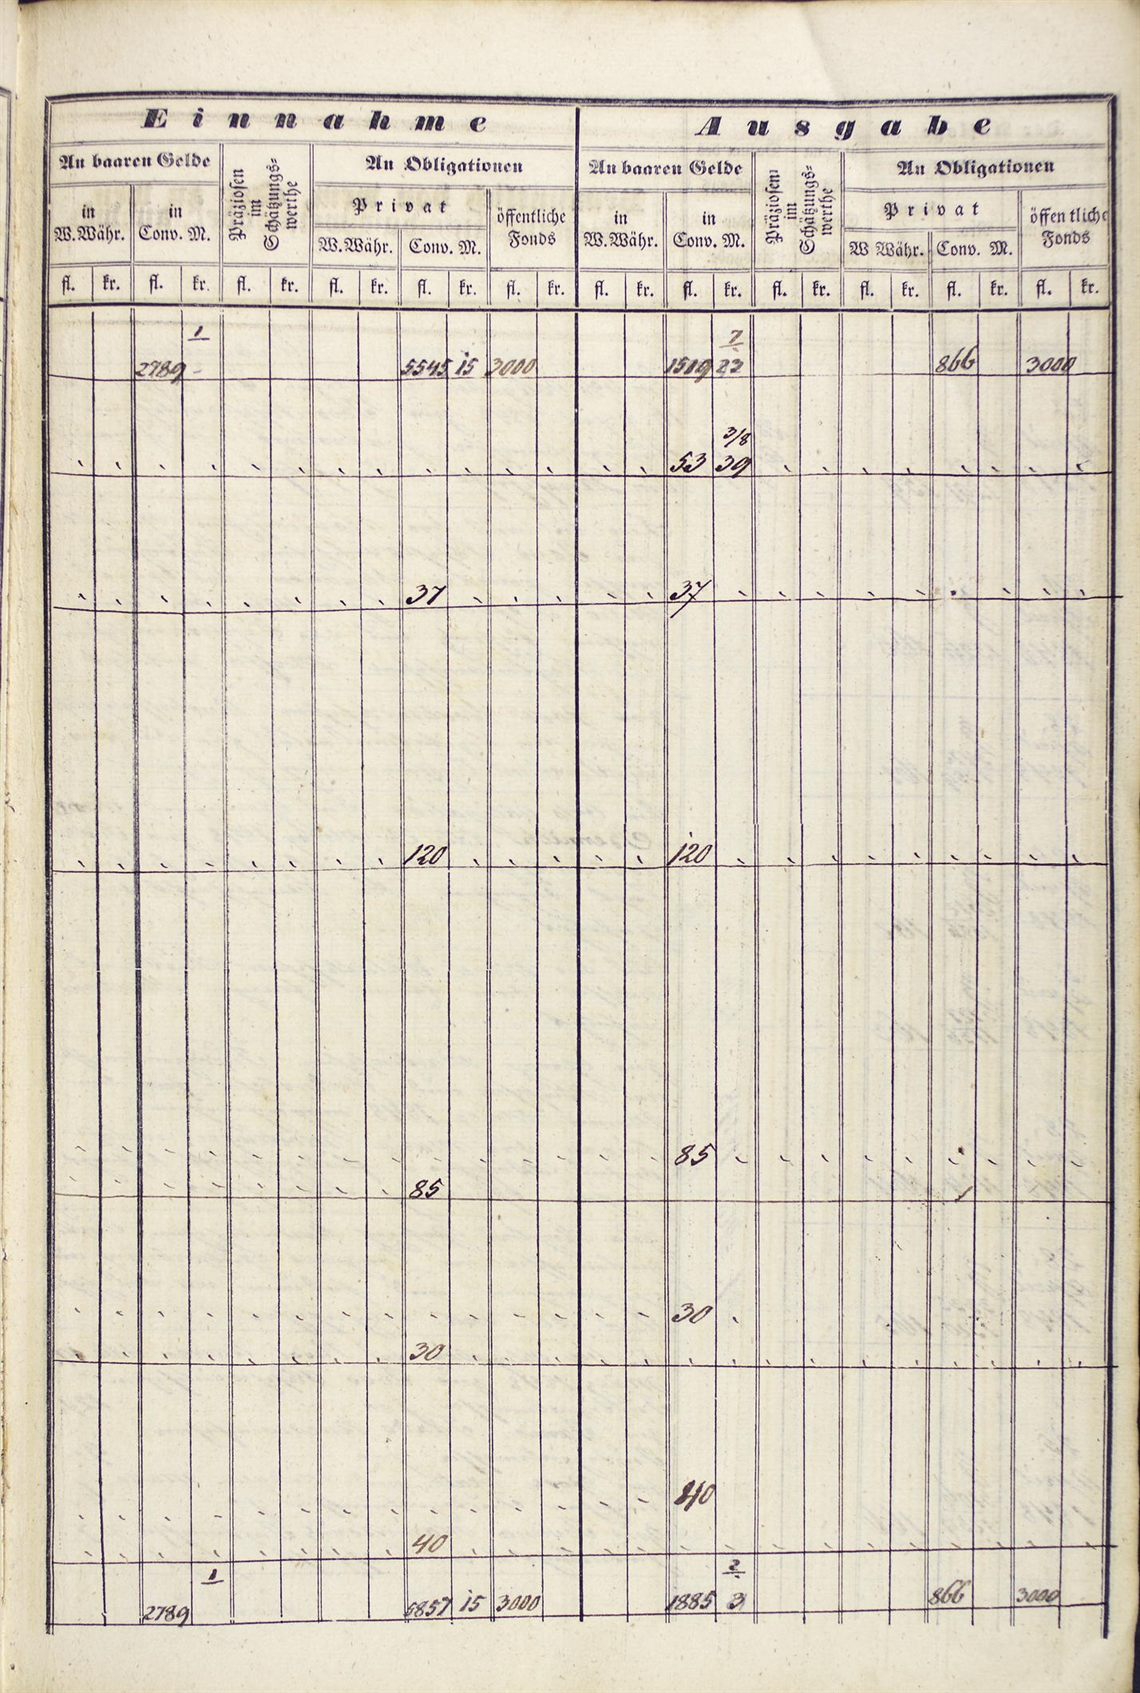 Einnahme Ausgabe
An baaren Gelde Präziosen im Schätzungs-werthe An Obligationen An baaren Gelde Präziosen im Schätzungs-werthe An Obligationen
in W.Währ. in Conv. M. Privat öffentliche Fonds in W.Währ. in Conv. M. Privat öffentliche Fonds
W.Währ. Conv. M. W Währ. Conv. M.
fl. kr. fl. kr. fl. kr. fl. kr. fl. kr. fl. kr. fl. kr. fl. kr. fl. kr. fl. kr. fl. kr. fl. kr.
1 7
2789 - 5545 15 3000 1509 22 866 3000
3/8
53 39
37 37
120 120
85
85
30
30
40
40
1 2
2789 5857 15 3000 1885 3 866 3000